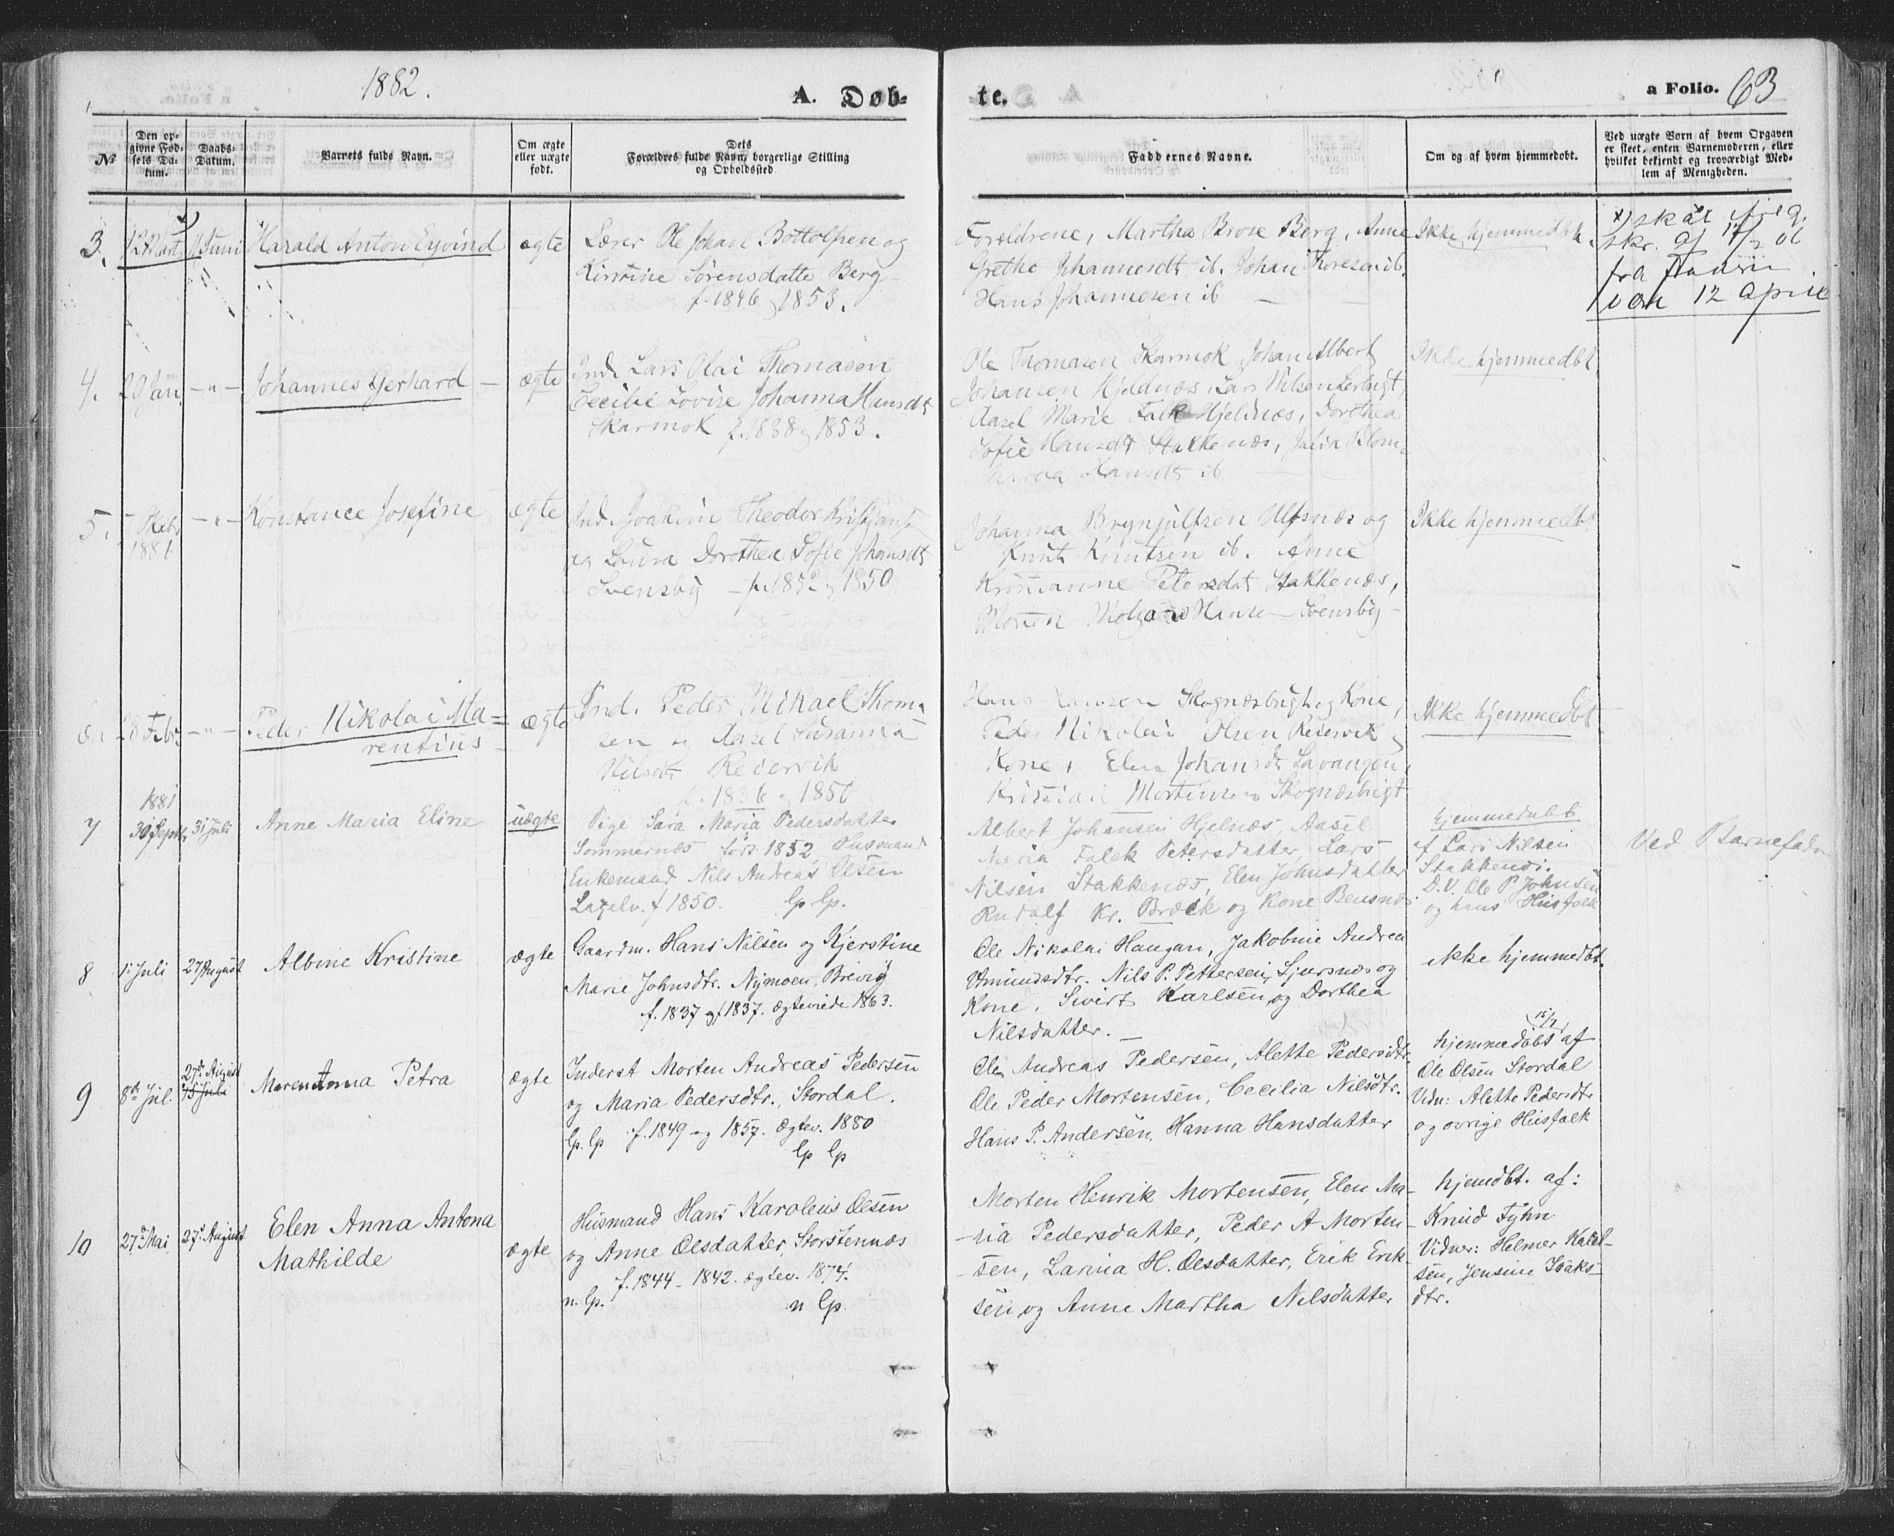 1882.
A. Døb-
te.
a Folio. 63
№
Den op-
givne Fød-
sels Da-
tum.
Daabs-
Datum.
Barnets fulde Navn.
Om ægte
eller uægte
født.
Dets
Forældres fulde Navn, borgerlige Stilling
og Opholdssted
Faddernes Navne.
Om og af hvem hjemmedøbt.
Ved uægte Børn af hvem Opgaven
er skeet, enten Barnemoderen, eller
hvilket bekjendt og troværdigt Med-
lem af Menigheden.
3.
12 Mart
11 Juni
Harald Anton Eyvind
ægte
Lærer Ole Johan Bottolfsen og
Kirstine Sørensdatter Berg
f. 1846 og 1853.
Forældrene, Martha Brose Berg, Anne
Grethe Johannesdt ib. Johan Thoresen ib.
Hans Johannesen ib
Ikke hjemmedbt
x) skal ifølge
skr. af
fra
være 12 April
4.
20 Jan
Johannes Gerhard
ægte
Ind. Lars Olai Thomasen
Cecilie Lovise Johanna Hansdt
Skarmok f. 1838 og 1853.
Ole Thomasen Skarmok Johan Albert
Johansen Hjeldnæs, Lars Nilsen Lerbugt,
Aasel Marie Falk Hjeldnæs, Dorothea
Sofie Hansdt Stakkenæs, Julia Blom
Hansdt ib
Ikke hjemmedbt
5.
1881
Konstance Josefine
ægte
Ind. Joakim Theodor Kristians
og Laura Dorothea Sofie Johansdt
Svensby f. 1852 og 1850.
Johanna Brynjulfsen Ulfsnæs og
Knut Knutsen ib. Anne
Kristianne Petersdat Stakkenæs,
Hanse Svensby
Ikke hjemmedbt
6.
18 Feb
Peder Nikolai Ma-
rentius
ægte
Ind. Peder Mikael Thoma
sen og Aasel Susanna
Nilsdt Reiervik
f. 1836 og 1850
Hans Hansen Skognæsbugt og Kone,
Peder Nikolai Olsen Reiervik og
Kone, Elen Johansdt Lavangen,
Kristian Mortensen Skognæsbugt
Ikke hjemmedbt
7
1881
30 Septbr
31 Juli
Anne Maria Eline
uægte
Pige Sara Maria Pedersdatter
Sommernæs født 1852 Husmand
Enkemand Nils Andreas Olsen
Lagelv. f 1850. Gp. Gp.
Albert Johansen Hjelnæs, Aasel
Maria Falck Petersdatter, Lars
Nilsen Stakkenæs, Elen Johnsdatter
Rudolf Kr. Bræck og Kone Bensnæs
Hjemmedøbt
af Lars Nilsen
Stakkenæs.
D.V. Ole P Johnsen
og hans Husfolk
Ved Barnefader
8
1ste Juli
27 August
Albine Kristine
ægte
Gaardm. Hans Nilsen og Kjerstine
Marie Johnsdtr. Nymoen, Brevig
f. 1837 og f 1837. ægteviede 1863.
Ole Nikolai Haugan, Jakobine Andrea
Amundsdtr. Nils P. Pettersen, Sjursnæs og
Kone, Sivert Karlsen og Dorthea
Nilsdatter.
ikke hjemmedbt.
9
8de Jul.
27de August
15 Juli
Maren Anna Petra
ægte
Inderst Morten Andreas Pedersen
og Maria Pedersdtr., Stordal.
Gp. Gp f. 1849 og 1857. ægtev. 1880
Gp Gp
Ole Andreas Pedersen, Alette Pedersdtr.
Ole Peder Mortensen, Cecilia Nilsdtr.
Hans P. Andersen, Hanna Hansdatter
15/7
hjemmedøbt af
Ole Olsen Stordal
Vidn: Alette Pedersdtr
og øvrige Husfolk
10
27de Mai
27de August
Elen Anna Antona
Mathilde
ægte
Husmand Hans Karolius Olsen
og Anne Olsdatter, Storstennæs
f. 1844 - 1842. ægtev. 1874.
n. Gp.
n Gp.
Morten Henrik Mortensen, Elen Ma-
ria Pedersdatter, Peder A Morten-
sen, Larina H. Olsdatter, Erik Erik-
sen og Anne Martha Nilsdatter
hjemdbt. af:
Knud Fyhn
Vidner: Helmer Karl-
sen, Jensine Isaks-
dtr.